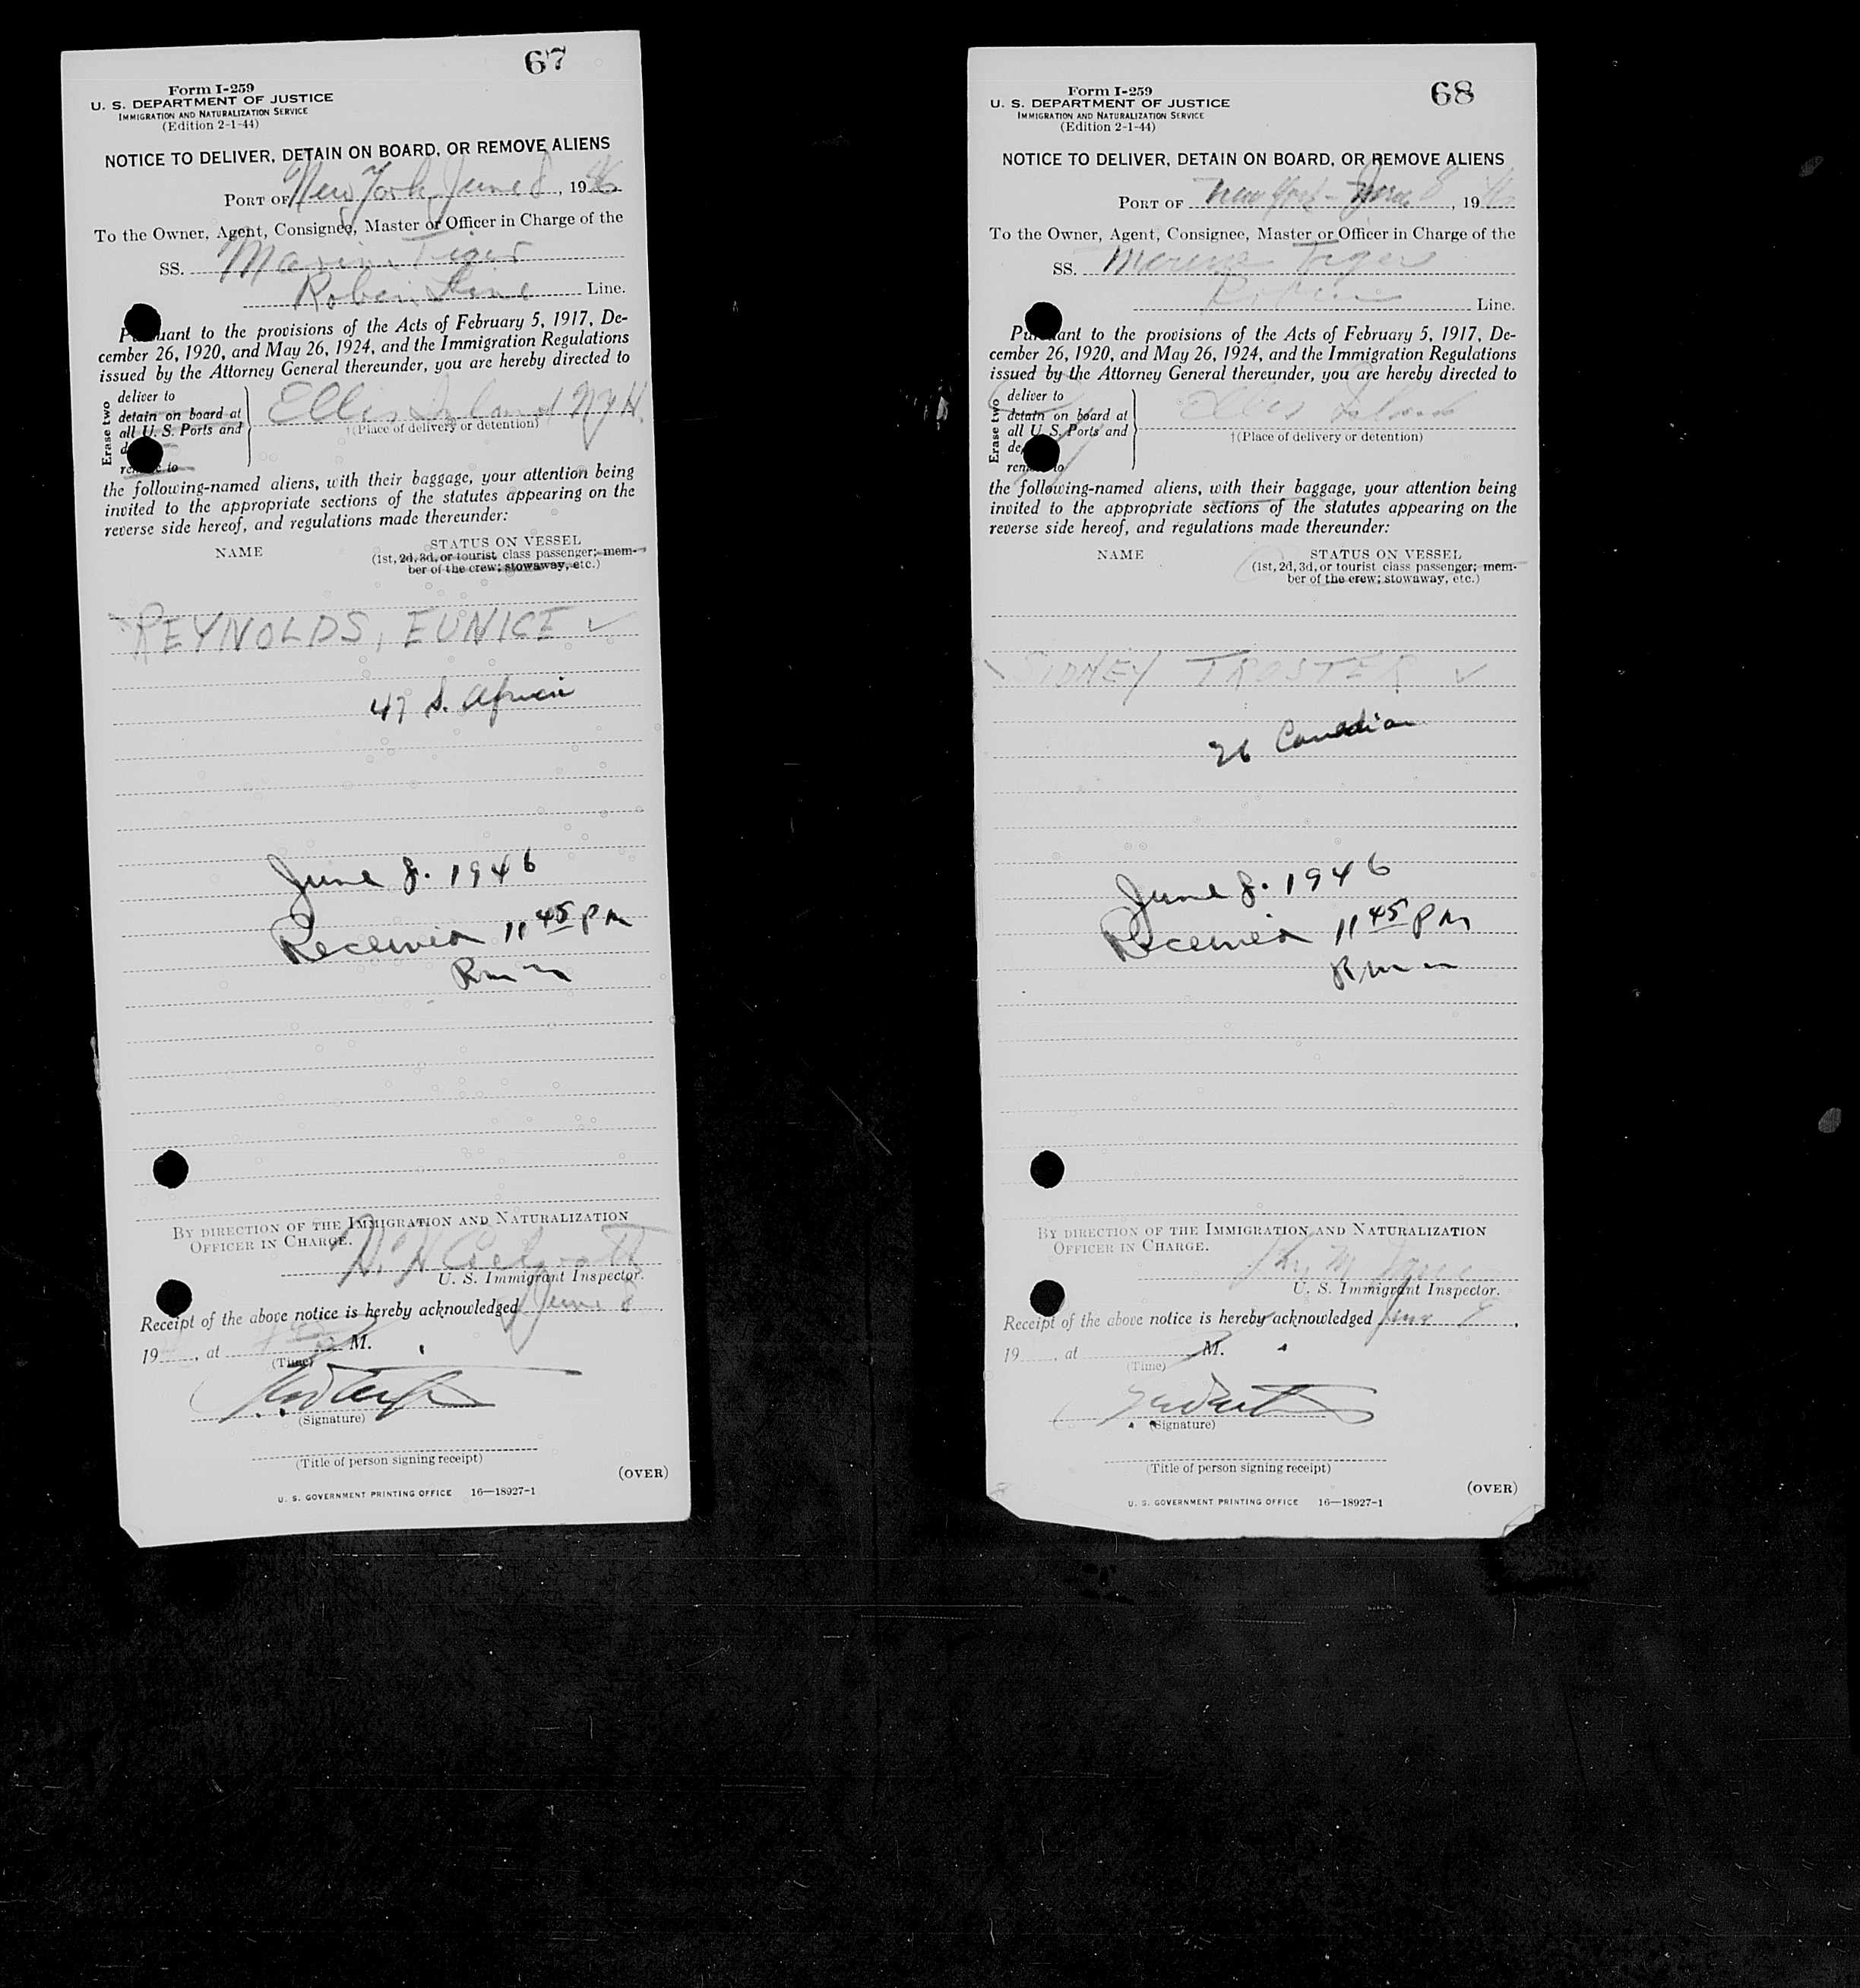 67
Form I-259
U. S. DEPARTMENT OF JUSTICE
IMMIGRATION AND NATURALIZATION SERVICE
(Edition 2-1-44)
NOTICE TO DELIVER, DETAIN ON BOARD, OR REMOVE ALIENS
PORT OF New York June 8, 1946
To the Owner, Agent, Consignee, Master or Officer in Charge of the
SS. Marine Tiger
Robin Line Line.
Pursuant to the provisions of the Acts of February 5, 1917, De-
cember 26, 1920, and May 26, 1924, and the Immigration Regulations
issued by the Attorney General thereunder, you are hereby directed to
Erase two
deliver to
detain on board at
all U. S. Ports and
remove to
Ellis Island N.Y.H.
†(Place of delivery or detention)
the following-named aliens, with their baggage, your attention being
invited to the appropriate sections of the statutes appearing on the
reverse side hereof, and regulations made thereunder:
NAME
STATUS ON VESSEL
(1st, 2d, 3d, or tourist class passenger; mem-
ber of the crew; stowaway, etc.)
REYNOLDS, EUNICE ✓
47 S. African
June 8. 1946
Received 11 45 PM
BY DIRECTION OF THE IMMIGRATION AND NATURALIZATION
OFFICER IN CHARGE.
U. S. Immigrant Inspector.
Receipt of the above notice is hereby acknowledged June 8,
19 , at M.
(Time)
(Signature)
(Title of person signing receipt)
(OVER)
U. S. GOVERNMENT PRINTING OFFICE 16—18927-1
68
Form I-259
U. S. DEPARTMENT OF JUSTICE
IMMIGRATION AND NATURALIZATION SERVICE
(Edition 2-1-44)
NOTICE TO DELIVER, DETAIN ON BOARD, OR REMOVE ALIENS
PORT OF New York - June 8, 1946
To the Owner, Agent, Consignee, Master or Officer in Charge of the
SS. Marine Tiger
Line.
Pursuant to the provisions of the Acts of February 5, 1917, De-
cember 26, 1920, and May 26, 1924, and the Immigration Regulations
issued by the Attorney General thereunder, you are hereby directed to
Erase two
deliver to
detain on board at
all U. S. Ports and
remove to
Ellis Island
†(Place of delivery or detention)
the following-named aliens, with their baggage, your attention being
invited to the appropriate sections of the statutes appearing on the
reverse side hereof, and regulations made thereunder:
NAME
STATUS ON VESSEL
(1st, 2d, 3d, or tourist class passenger; mem-
ber of the crew; stowaway, etc.)
SIDNEY TROSTER ✓
26 Canadian
June 8. 1946
Received 11 45 PM
BY DIRECTION OF THE IMMIGRATION AND NATURALIZATION
OFFICER IN CHARGE.
U. S. Immigrant Inspector.
Receipt of the above notice is hereby acknowledged June 8,
19 , at M.
(Time)
(Signature)
(Title of person signing receipt)
(OVER)
U. S. GOVERNMENT PRINTING OFFICE 16—18927-1